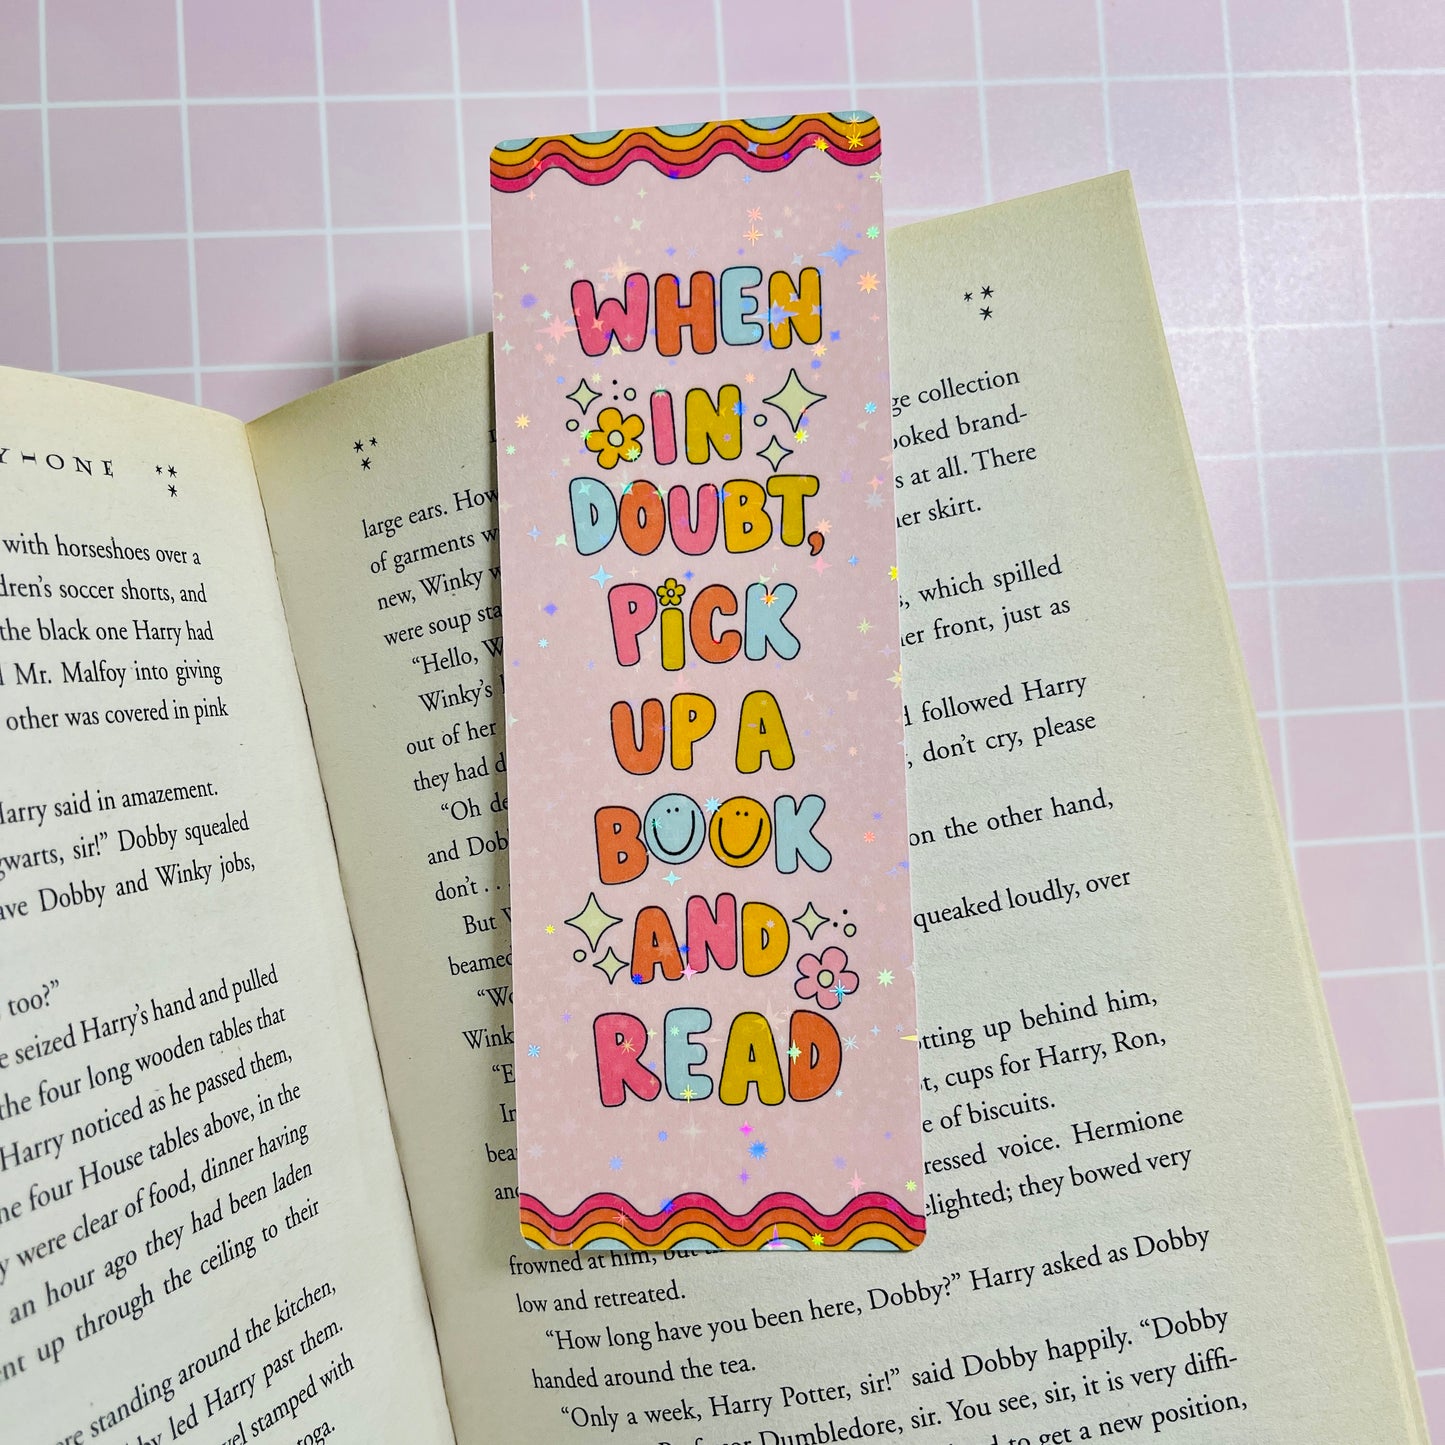 WHEN
IN
DOUBT,
PICK
UP A
BOOK
AND
READ
Y-ONE
with horseshoes over a
dren's soccer shorts, and
the black one Harry had
Mr. Malfoy into giving
other was covered in pink
Harry said in amazement.
gwarts, sir!" Dobby squealed
ave Dobby and Winky jobs,
too?"
e seized Harry's hand and pulled
the four long wooden tables that
Harry noticed as he passed them,
ne four House tables above, in the
y were clear of food, dinner having
an hour ago they had been laden
nt up through the ceiling to their
ere standing around the kitchen,
by led Harry past them.
vel stamped with
toga.
large ears. How
of garments w
new, Winky w
were soup sta
"Hello, W
Winky's
out of her
they had d
"Oh de
and Dob
don't . . .
But W
beamed
"Wo
Wink
"E
In
bea
and
frowned at him, but
low and retreated.
"How long have you been here, Dobby?" Harry asked as Dobby
handed around the tea.
"Only a week, Harry Potter, sir!" said Dobby happily. "Dobby
Professor Dumbledore, sir. You see, sir, it is very diffi-
d to get a new position,
ge collection
ooked brand-
s at all. There
her skirt.
, which spilled
her front, just as
d followed Harry
, don't cry, please
on the other hand,
queaked loudly, over
tting up behind him,
t, cups for Harry, Ron,
e of biscuits.
ressed voice. Hermione
elighted; they bowed very